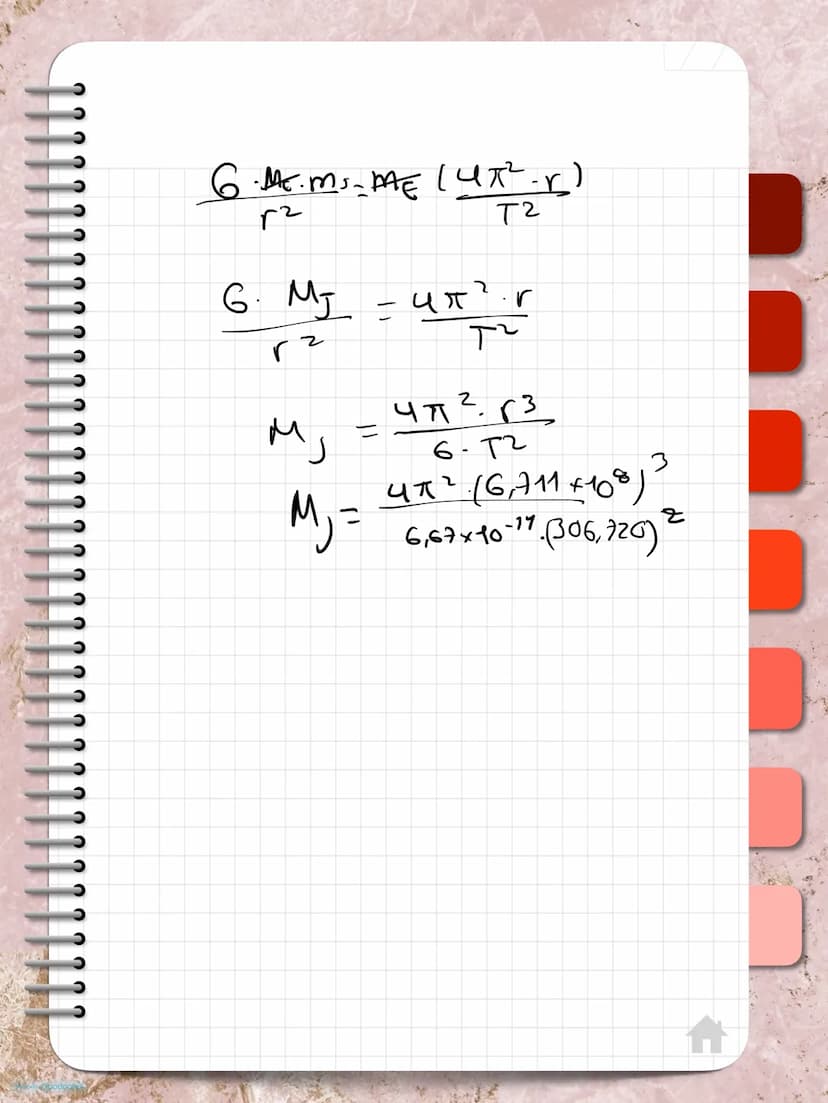 G · M̶E̶ · mJ / r² = M̶E̶ (4π² · r / T²)
G · MJ / r² = 4π² · r / T²
MJ = 4π² · r³ / G · T²
MJ = 4π² · (6,711 × 10⁸)³ / 6,67 × 10⁻¹¹ · (306,720)²